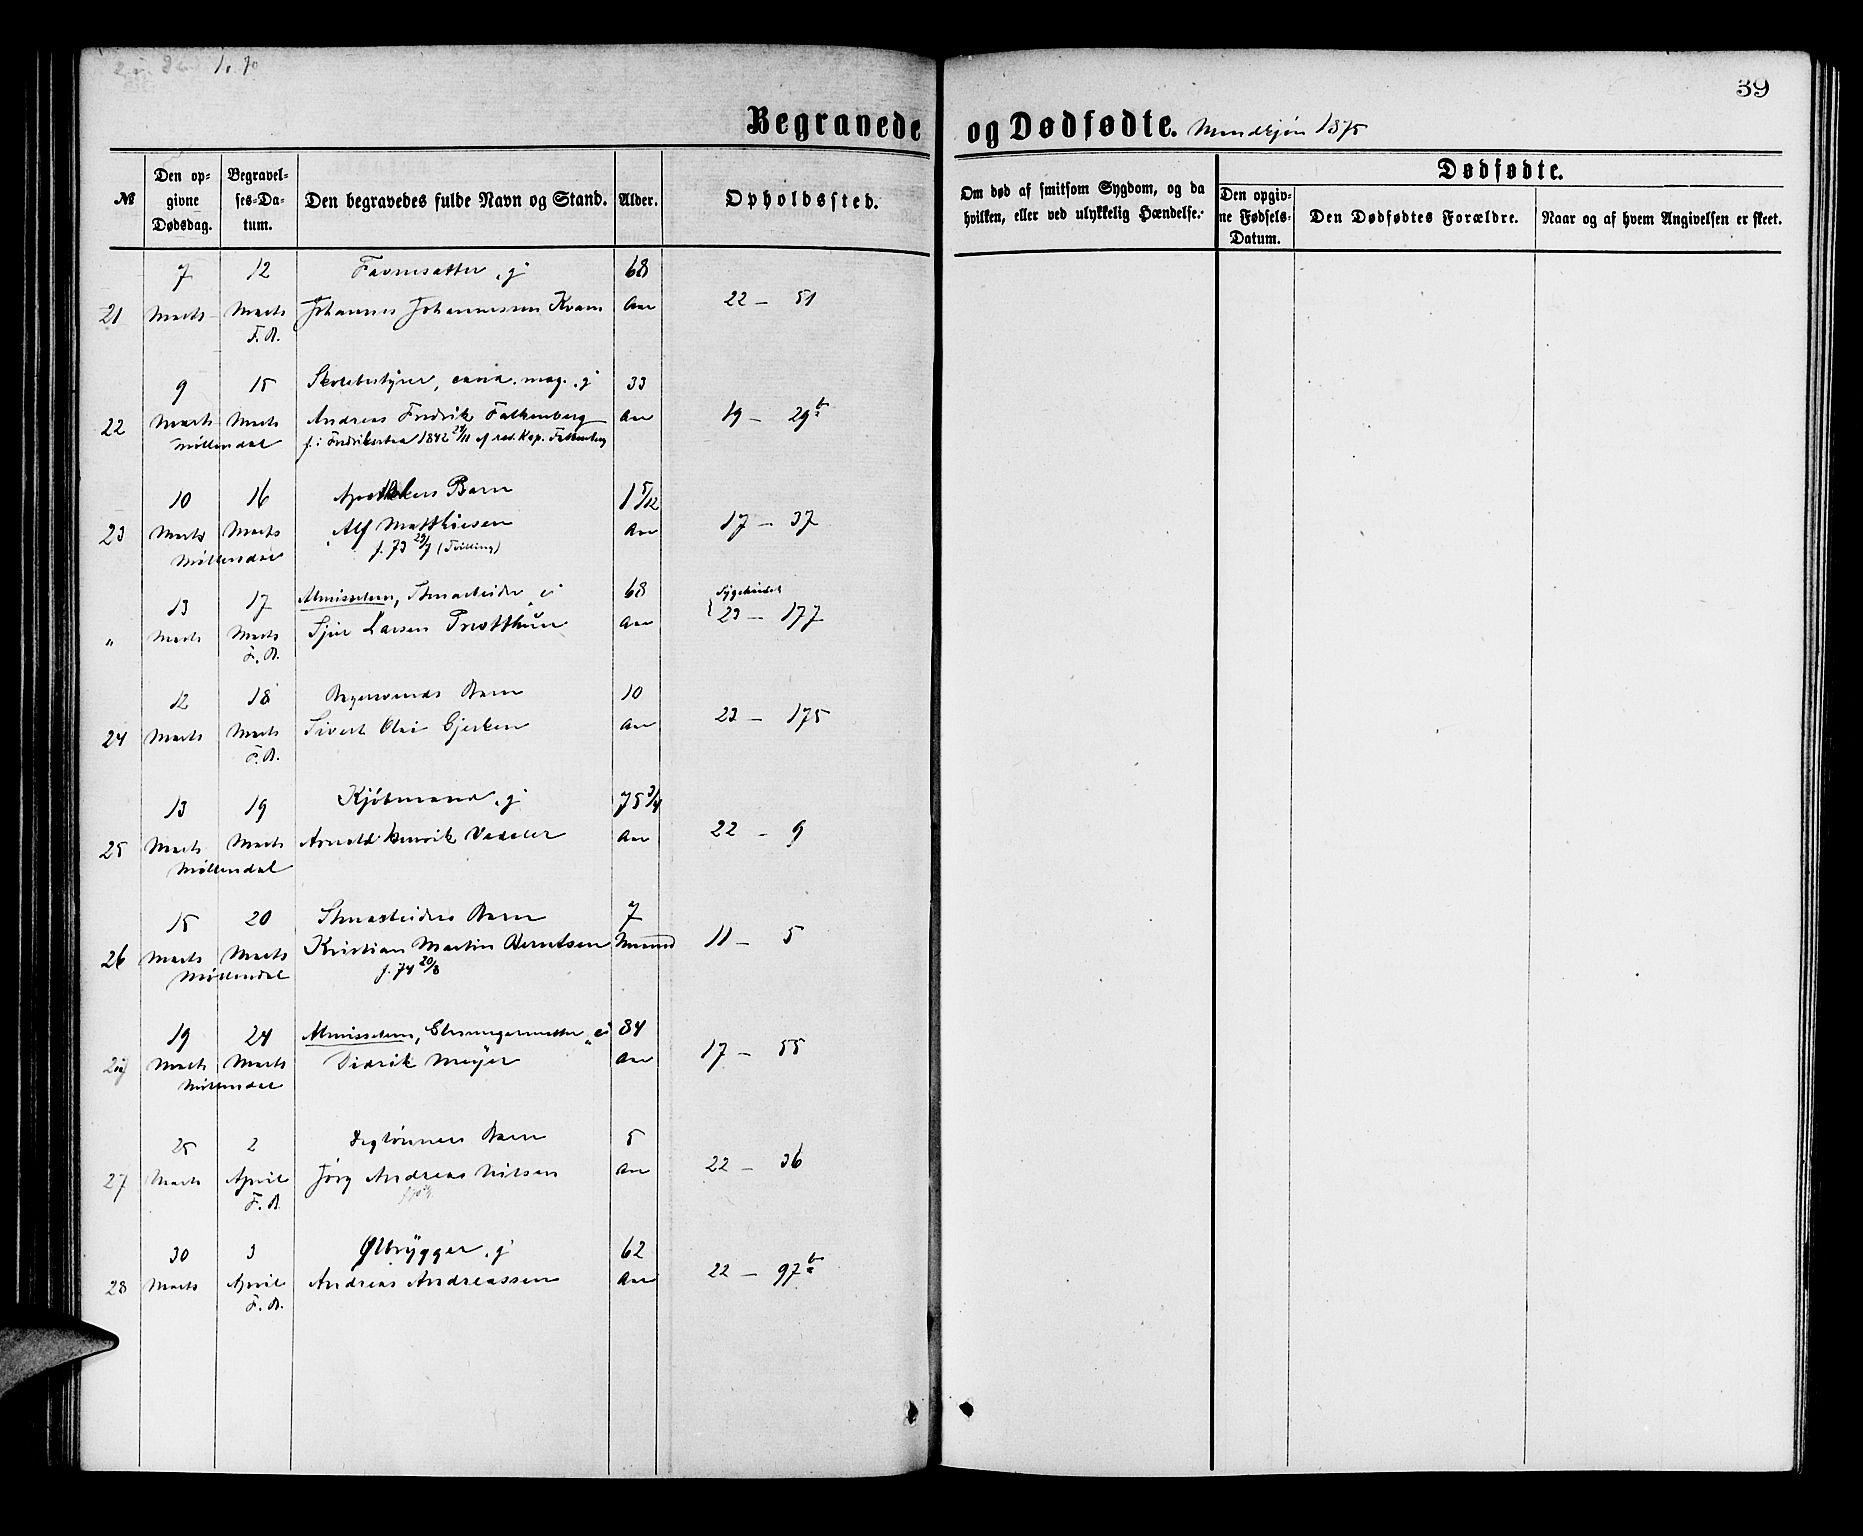 39
Begravede og Dødfødte. Mandkjøn 1875
№
Den opgivne Dødsdag.
Begravelses-Datum.
Den begravedes fulde Navn og Stand.
Alder.
Opholdssted.
Om død af smitsom Sygdom, og da hvilken, eller ved ulykkelig Hændelse.
Dødfødte.
Den opgivne Fødsels-Datum.
Den Dødfødtes Forældre.
Naar og af hvem Angivelsen er skeet.
7 12 Favnesætter, g 68
21 Marts Marts Johannes Johannessen Kvam Aar 22 – 51
F. B.
9 15 Skolebestyrer, cand. mag., g 33
22 Marts Marts Andreas Fredrik Falkenberg Aar 19 – 29 b
Møllendal f. i Fredrikstad 1842 29/11 af Kap. Falkenberg
10 16 Apothekers Barn 1 5/12
23 Marts Marts Alf Matthiesen Aar 17 – 37
Møllendal f. 73 29/7 (Tvilling)
13 17 Almisselem, Stenarbeider, ei 68 Sygehuset
" Marts Marts Sjur Larsen Aar 23 – 177
F. B.
12 18 Bagersvends Barn 10
24 Marts Marts Sivert Olai Gjerken Aar 23 – 175
F. B.
13 19 Kjøbmand, g 75 3/4
25 Marts Marts Arnold Henrik Vedeler Aar 22 – 9
Møllendal
15 20 Stenarbeiders Barn 7
26 Marts Marts Kristian Martin Berntsen Maaned 11 – 5
Møllendal f. 74 20/8
19 24 Almisselem, ei 84
Marts Marts Didrik Meyer Aar 17 – 55
Møllendal
25 2 Barn 5
27 Marts April Jørg Andreas Nilsen Aar 22 – 36
F. B.
30 3 Ølbrygger, g 62
28 Marts April Andreas Andreassen Aar 22 – 97 b
F. B.